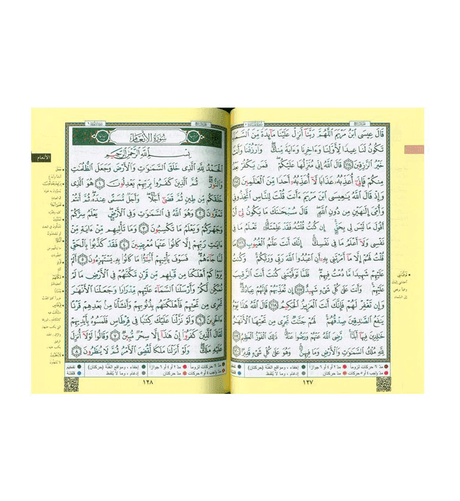 قَالَ عِيسَى ابْنُ مَرْيَمَ اللَّهُمَّ رَبَّنَا أَنزِلْ عَلَيْنَا مَائِدَةً مِّنَ
السَّمَاءِ تَكُونُ لَنَا عِيدًا لِّأَوَّلِنَا وَآخِرِنَا وَآيَةً مِّنكَ وَارْزُقْنَا وَأَنتَ
خَيْرُ الرَّازِقِينَ ١١٤ قَالَ اللَّهُ إِنِّي مُنَزِّلُهَا عَلَيْكُمْ فَمَن يَكْفُرْ بَعْدُ
مِنكُمْ فَإِنِّي أُعَذِّبُهُ عَذَابًا لَّا أُعَذِّبُهُ أَحَدًا مِّنَ الْعَالَمِينَ ١١٥
وَإِذْ قَالَ اللَّهُ يَا عِيسَى ابْنَ مَرْيَمَ أَأَنتَ قُلْتَ لِلنَّاسِ اتَّخِذُونِي
وَأُمِّيَ إِلَٰهَيْنِ مِن دُونِ اللَّهِ قَالَ سُبْحَانَكَ مَا يَكُونُ لِي
أَنْ أَقُولَ مَا لَيْسَ لِي بِحَقٍّ إِن كُنتُ قُلْتُهُ فَقَدْ عَلِمْتَهُ تَعْلَمُ مَا فِي
نَفْسِي وَلَا أَعْلَمُ مَا فِي نَفْسِكَ إِنَّكَ أَنتَ عَلَّامُ الْغُيُوبِ ١١٦
مَا قُلْتُ لَهُمْ إِلَّا مَا أَمَرْتَنِي بِهِ أَنِ اعْبُدُوا اللَّهَ رَبِّي وَرَبَّكُمْ وَكُنتُ
عَلَيْهِمْ شَهِيدًا مَّا دُمْتُ فِيهِمْ فَلَمَّا تَوَفَّيْتَنِي كُنتَ أَنتَ الرَّقِيبَ
عَلَيْهِمْ وَأَنتَ عَلَىٰ كُلِّ شَيْءٍ شَهِيدٌ ١١٧ إِن تُعَذِّبْهُمْ فَإِنَّهُمْ عِبَادُكَ
وَإِن تَغْفِرْ لَهُمْ فَإِنَّكَ أَنتَ الْعَزِيزُ الْحَكِيمُ ١١٨ قَالَ اللَّهُ هَٰذَا يَوْمُ يَنفَعُ
الصَّادِقِينَ صِدْقُهُمْ لَهُمْ جَنَّاتٌ تَجْرِي مِن تَحْتِهَا الْأَنْهَارُ
خَالِدِينَ فِيهَا أَبَدًا رَّضِيَ اللَّهُ عَنْهُمْ وَرَضُوا عَنْهُ ذَٰلِكَ الْفَوْزُ الْعَظِيمُ ١١٩
لِلَّهِ مُلْكُ السَّمَاوَاتِ وَالْأَرْضِ وَمَا فِيهِنَّ وَهُوَ عَلَىٰ كُلِّ شَيْءٍ قَدِيرٌ ١٢٠
١٢٧
الأنعام
سُورَةُ الْأَنْعَامِ
بِسْمِ اللَّهِ الرَّحْمَٰنِ الرَّحِيمِ
الْحَمْدُ لِلَّهِ الَّذِي خَلَقَ السَّمَاوَاتِ وَالْأَرْضَ وَجَعَلَ الظُّلُمَاتِ
وَالنُّورَ ثُمَّ الَّذِينَ كَفَرُوا بِرَبِّهِمْ يَعْدِلُونَ ١ هُوَ الَّذِي
خَلَقَكُم مِّن طِينٍ ثُمَّ قَضَىٰ أَجَلًا وَأَجَلٌ مُّسَمًّى عِندَهُ ثُمَّ أَنتُمْ
تَمْتَرُونَ ٢ وَهُوَ اللَّهُ فِي السَّمَاوَاتِ وَفِي الْأَرْضِ يَعْلَمُ سِرَّكُمْ
وَجَهْرَكُمْ وَيَعْلَمُ مَا تَكْسِبُونَ ٣ وَمَا تَأْتِيهِم مِّنْ آيَةٍ مِّنْ
آيَاتِ رَبِّهِمْ إِلَّا كَانُوا عَنْهَا مُعْرِضِينَ ٤ فَقَدْ كَذَّبُوا بِالْحَقِّ
لَمَّا جَاءَهُمْ فَسَوْفَ يَأْتِيهِمْ أَنبَاءُ مَا كَانُوا بِهِ يَسْتَهْزِئُونَ ٥
أَلَمْ يَرَوْا كَمْ أَهْلَكْنَا مِن قَبْلِهِم مِّن قَرْنٍ مَّكَّنَّاهُمْ فِي الْأَرْضِ مَا لَمْ
نُمَكِّن لَّكُمْ وَأَرْسَلْنَا السَّمَاءَ عَلَيْهِم مِّدْرَارًا وَجَعَلْنَا الْأَنْهَارَ
تَجْرِي مِن تَحْتِهِمْ فَأَهْلَكْنَاهُم بِذُنُوبِهِمْ وَأَنشَأْنَا مِن بَعْدِهِمْ قَرْنًا
آخَرِينَ ٦ وَلَوْ نَزَّلْنَا عَلَيْكَ كِتَابًا فِي قِرْطَاسٍ فَلَمَسُوهُ بِأَيْدِيهِمْ
لَقَالَ الَّذِينَ كَفَرُوا إِنْ هَٰذَا إِلَّا سِحْرٌ مُّبِينٌ ٧ وَقَالُوا لَوْلَا أُنزِلَ
عَلَيْهِ مَلَكٌ وَلَوْ أَنزَلْنَا مَلَكًا لَّقُضِيَ الْأَمْرُ ثُمَّ لَا يُنظَرُونَ ٨
١٢٨